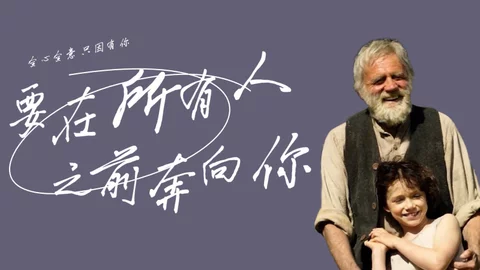 全心全意只因有你
要在所有人
之前奔向你